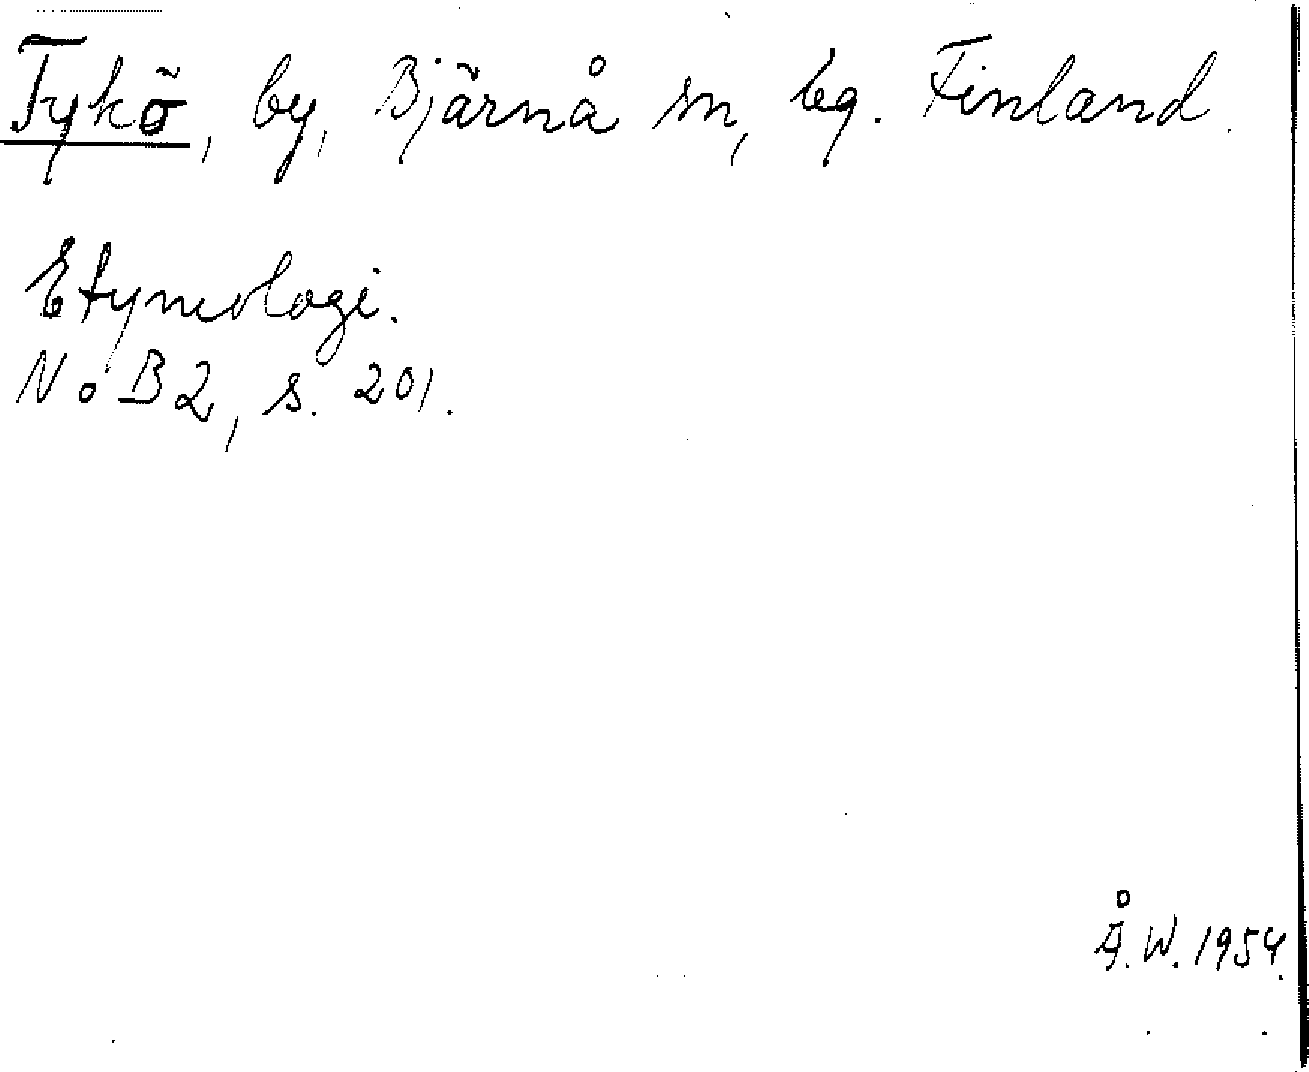 Tykö, by, Bjärnå sn, Eg. Finland.
Etymologi.
NoB 2, s. 201.
Å.W. 1954.